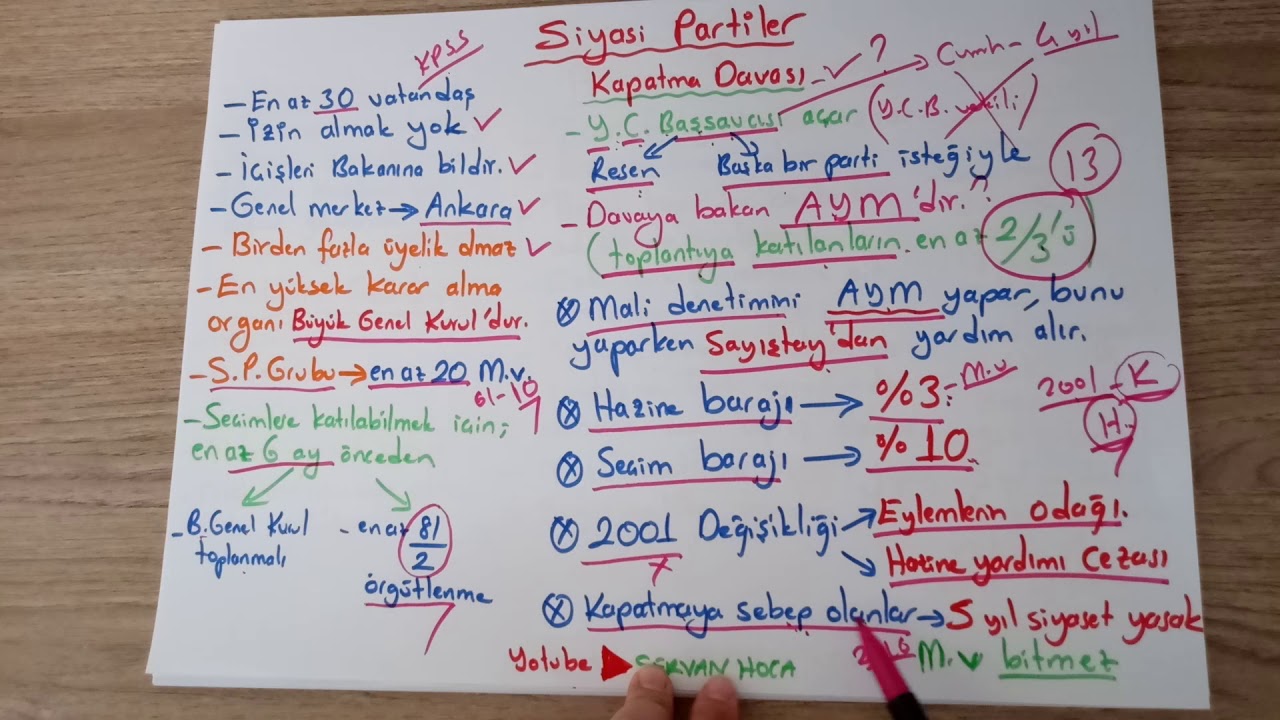 Siyasi Partiler
KPSS
- En az 30 vatandaş
- İzin almak yok ✓
- İçişleri Bakanına bildir. ✓
- Genel merkez → Ankara ✓
- Birden fazla üyelik olmaz ✓
- En yüksek karar alma
organı Büyük Genel Kurul'dur.
- S.P. Grubu → en az 20 M.v.
61-10
- Seçimlere katılabilmek için;
en az 6 ay önceden
- B. Genel Kurul
toplanmalı
- en az 81/2
örgütlenme
Kapatma Davası - ✓ ? → Cumh - 4 yıl
- Y.C. Başsavcısı açar (Y.C.B. vekili)
Resen Başka bir parti isteğiyle
13
- Davaya bakan AYM'dir.
(toplantıya katılanların en az 2/3'ü)
⊗ Mali denetimini AYM yapar, bunu
yaparken Sayıştay'dan yardım alır.
⊗ Hazine barajı → %3 - M.v
2001 - K
H.
⊗ Seçim barajı → %10
⊗ 2001 Değişikliği → Eylemlerin odağı.
→ Hazine yardımı cezası
⊗ Kapatmaya sebep olanlar → 5 yıl siyaset yasak
M.v bitmez
Yotube ▶ SERVAN HOCA